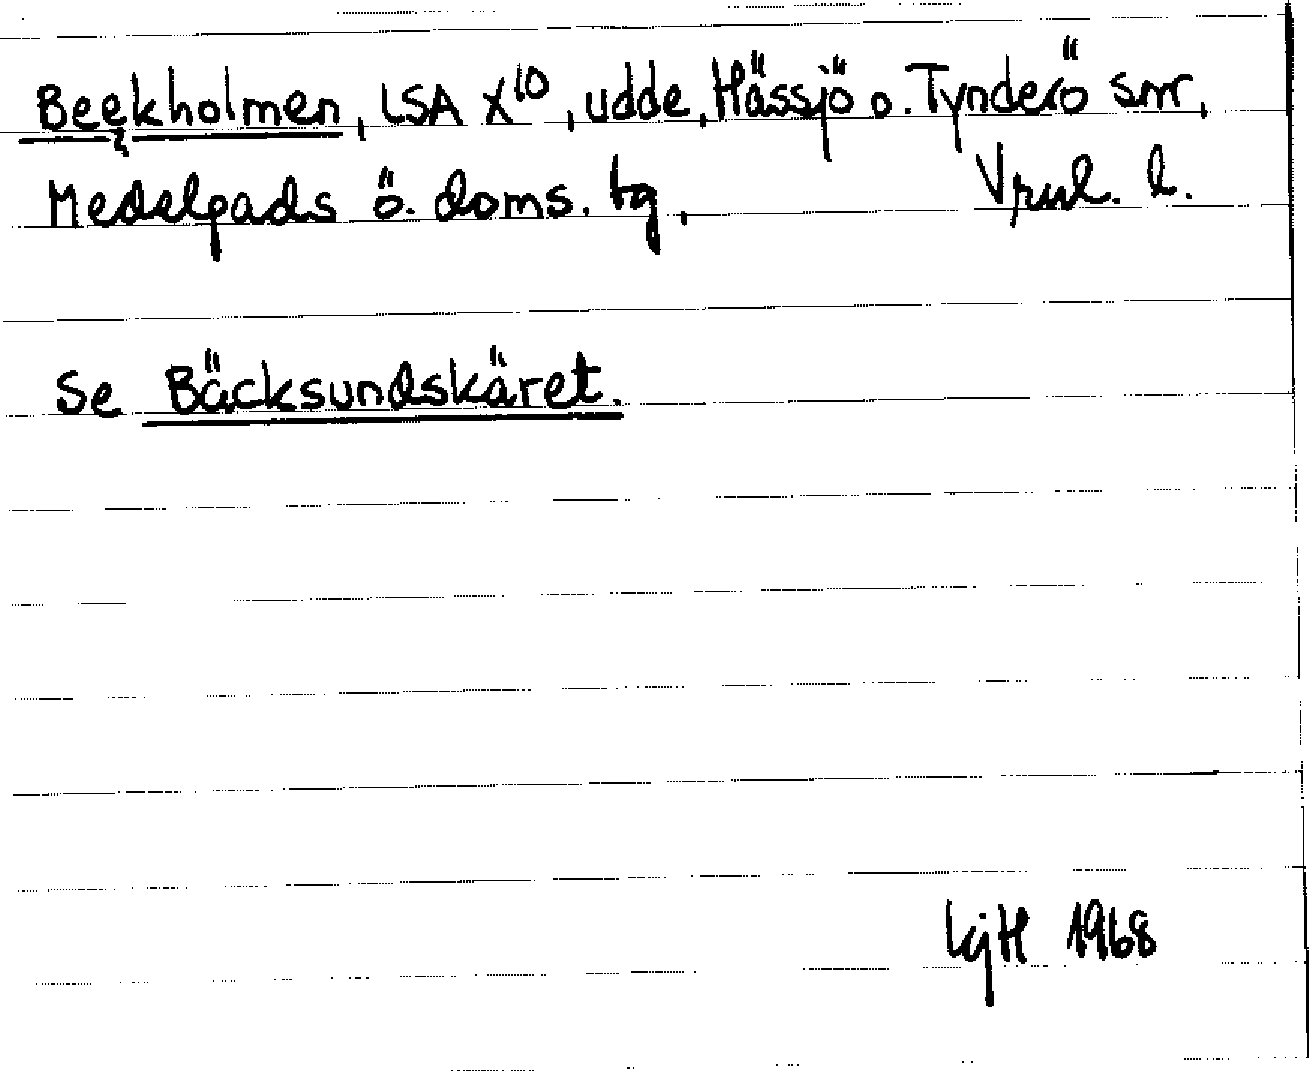 Beekholmen, LSA X¹⁰, udde, Hässjö o. Tynderö snr,
Medelpads ö. doms. tg, Vrnl. l.
Se Bäcksundskäret.
1968